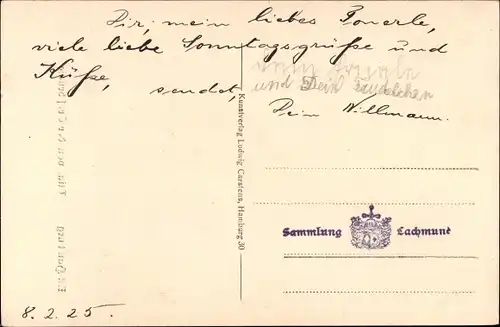 Dir, mein liebes Ponerle,
viele liebe Sonntagsgrüße und
Küsse, sendet,
und Dein
Dein Willmann.
Kunstverlag Ludwig Carstens, Hamburg 30
Sammlung Lachmund
8.2.25.